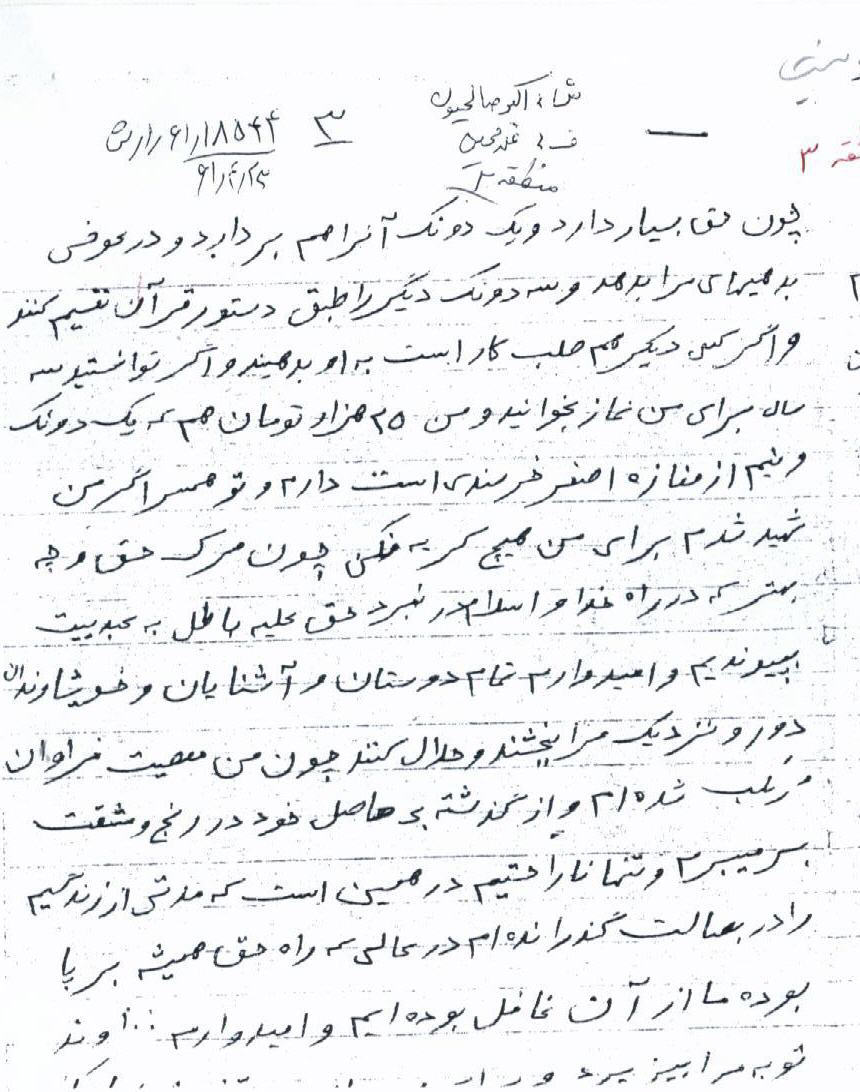 اکبر صالحیون
۳
منطقه ۳
۶۱/۴/۲۳
چون حق بسیار دارد و یک دونگ آنرا هم بردارد و در عوض
بدهیهای مرا بدهد و سه دونگ دیگر را طبق دستور قرآن تقسیم کنند
و اگر کسی دیگر هم طلب کار است به او بدهیند و اگر توانستید سه
سال برای من نماز بخوانید و من ۲۵ هزار تومان هم که یک دونگ
و نیم از مغازه اصغر خرسندی است دارم و تو همسر اگر من
شهید شدم برای من هیچ گریه نکن چون مرگ حق و چه
بهتر که در راه خدا و اسلام در نبرد حق علیه باطل به عبدیت
بپیوندیم و امیدوارم تمام دوستان و آشنایان و خویشاوندان
دور و نزدیک مرا ببخشند و حلال کنند چون من معصیت فراوان
مرتکب شده ام و از گذشته بی حاصل خود در رنج و مشقت
بسر میبرم و تنها ناراحتیم در همین است که مدتی از زندگیم
را در بطالت گذرانده ام در حالی که راه حق همیشه بر پا
بوده ما از آن غافل بوده ایم و امیدوارم خداوند
توبه مرا بپذیرد و